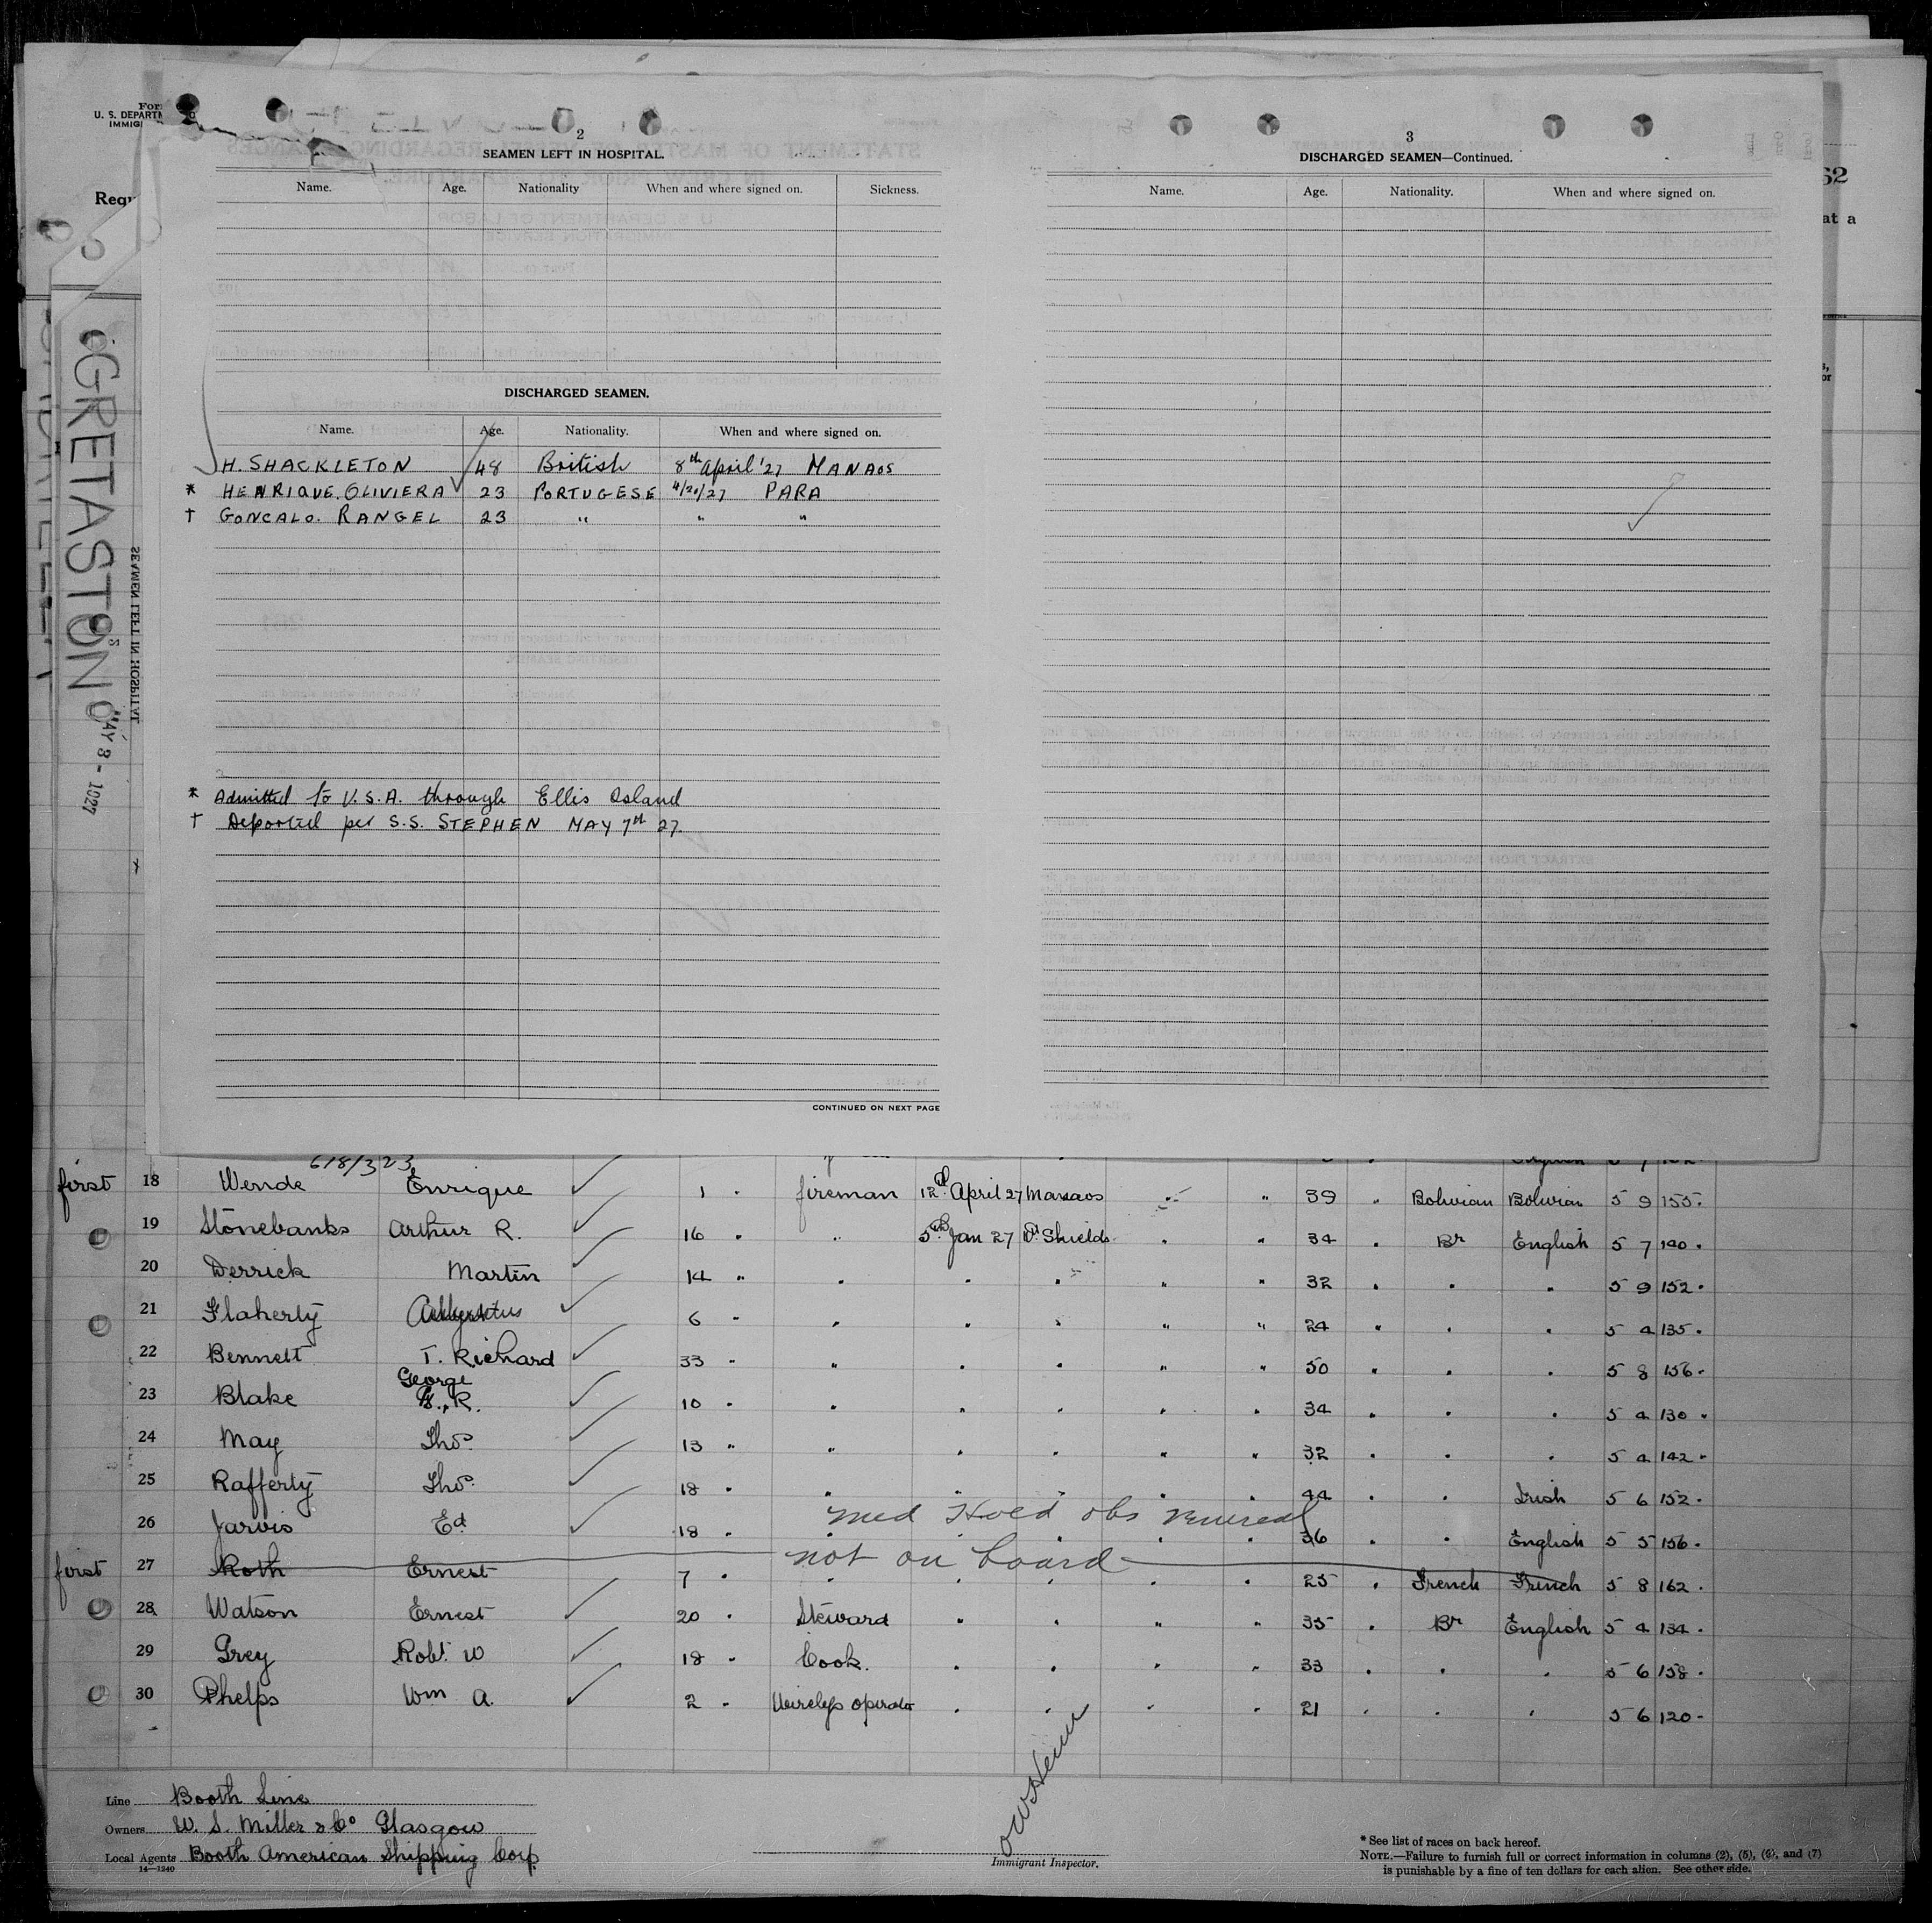 For
U. S. DEPARTM
IMMIGI
Requ
62
at a
GRETASTON
MAY 3 - 1927
SEAMEN LEFT IN HOSPITAL
2
SEAMEN LEFT IN HOSPITAL.
Name. Age. Nationality When and where signed on. Sickness.
DISCHARGED SEAMEN.
Name. Age. Nationality. When and where signed on.
H. SHACKLETON 48 British 8th April '27 MANAOS
* HENRIQUE. OLIVIERA 23 PORTUGESE 4/20/27 PARA
† GONCALO. RANGEL 23 " " "
* Admitted to U.S.A. through Ellis Island
† Deported per S.S. STEPHEN MAY 7th 27.
CONTINUED ON NEXT PAGE
3
DISCHARGED SEAMEN—Continued.
Name. Age. Nationality. When and where signed on.
618/323
first 18 Wende Enrique 1 " fireman 12th April 27 Manaos " " 39 " Bolivian Bolivian 5 9 155.
19 Stonebanks Arthur R. 16 " " 5th Jan 27 Sh. Shields " " 34 " Br English 5 7 140 "
20 Derrick Martin 14 " " " " " " 32 " " " 5 9 152 "
21 Flaherty 6 " " " " " " 24 " " " 5 4 135 "
22 Bennett T. Richard 33 " " " " " " 50 " " " 5 8 156 "
George
23 Blake G. R. 10 " " " " " " 34 " " " 5 4 130 "
24 May Thos 13 " " " " " " 32 " " " 5 4 142 "
25 Rafferty Thos 18 " " " " " " 44 " " Irish 5 6 152 "
med Hold obs venereal
26 Jarvis Ed 18 " " " " " " 36 " " English 5 5 156 "
not on board
first 27 Roth Ernest 7 " " " " " " 25 " French French 5 8 162 "
28 Watson Ernest 20 " Steward " " " " 35 " Br English 5 4 134 "
29 Grey Robt. W 18 " Cook. " " " " 33 " " " 5 6 158 "
30 Phelps Wm A. 2 " Wireless operator " " " " 21 " " " 5 6 120 "
Line Booth Line
Owners W. S. Miller & Co Glasgow
Local Agents Booth American Shipping Corp
14—1240
Immigrant Inspector.
* See list of races on back hereof.
NOTE.—Failure to furnish full or correct information in columns (2), (5), (6), and (7)
is punishable by a fine of ten dollars for each alien. See other side.